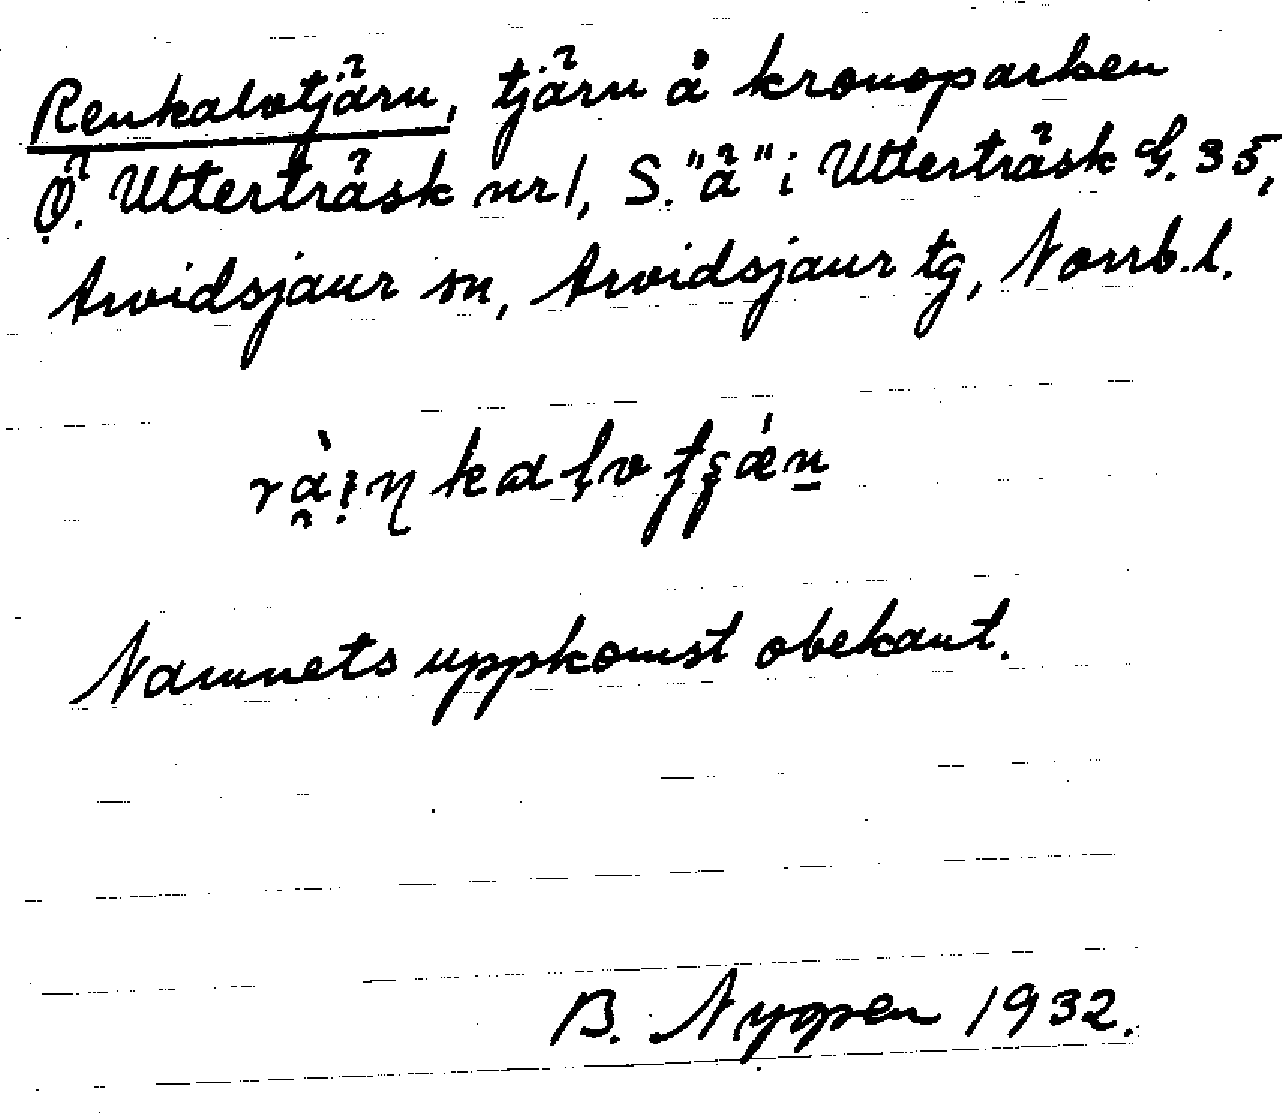 Renkalvtjärn, tjärn å kronoparken
Ö. Utterträsk nr 1, S. "ä" i Utterträsk G. 35,
Arvidsjaur sn, Arvidsjaur tg, Norrb. l.
Namnets uppkomst obekant.
B. Nygren 1932.